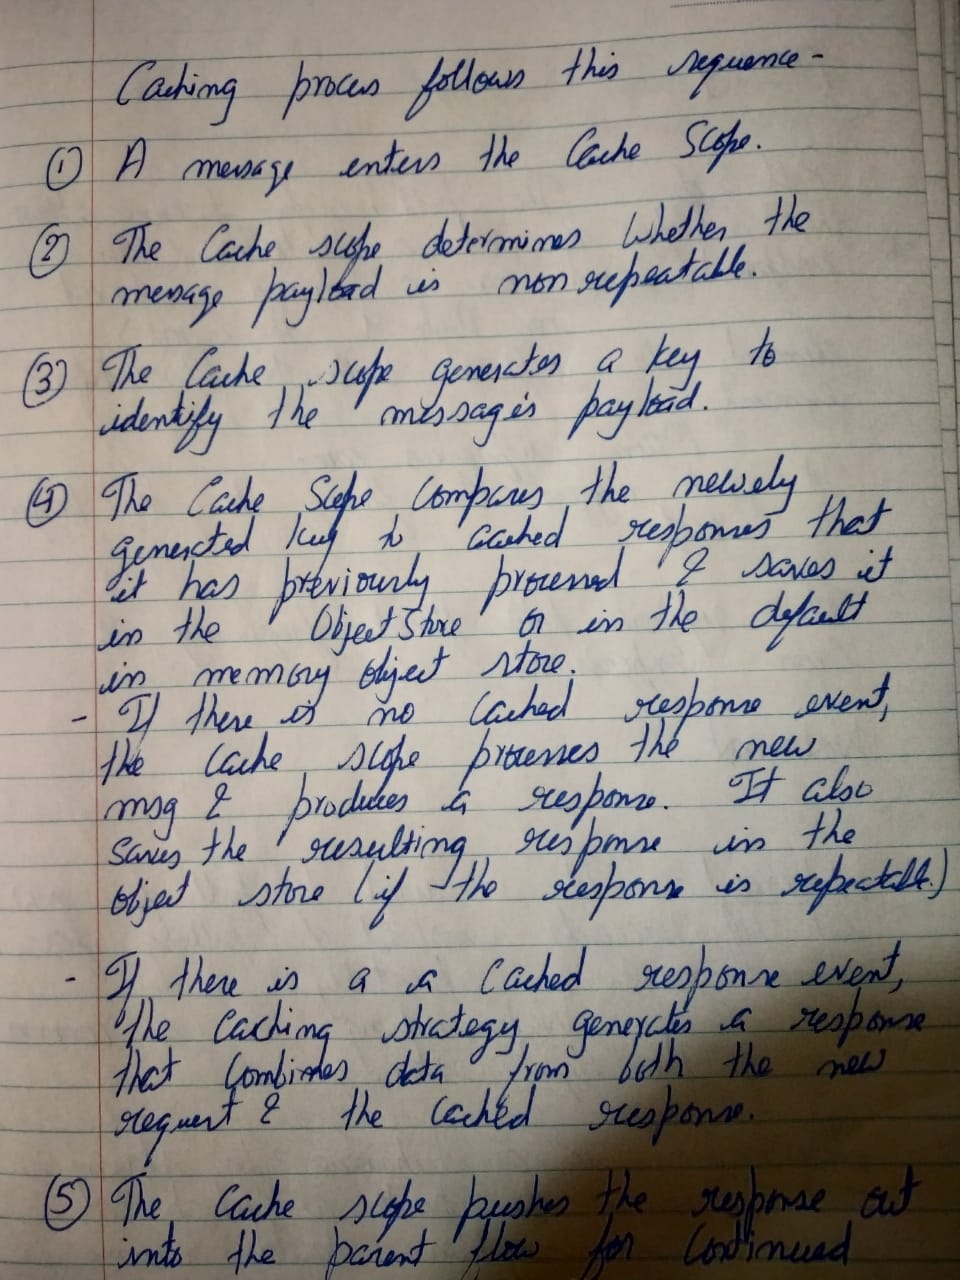 Caching process follows this sequence -
① A message enters the Cache Scope.
② The Cache scope determines whether the
message payload is non repeatable.
③ The Cache scope generates a key to
identify the message's payload.
④ The Cache Scope compares the newely
generated key to cached responses that
it has previously processed & saves it
in the Object Store or in the default
in memory object store.
- If there is no cached response event,
the Cache scope processes the new
msg & produces a response. It also
saves the resulting response in the
object store (if the response is repeatable.)
- If there is a a cached response event,
the caching strategy generates a response
that combines data from both the new
request & the cached response.
⑤ The Cache scope pushes the response out
into the parent flow for continued